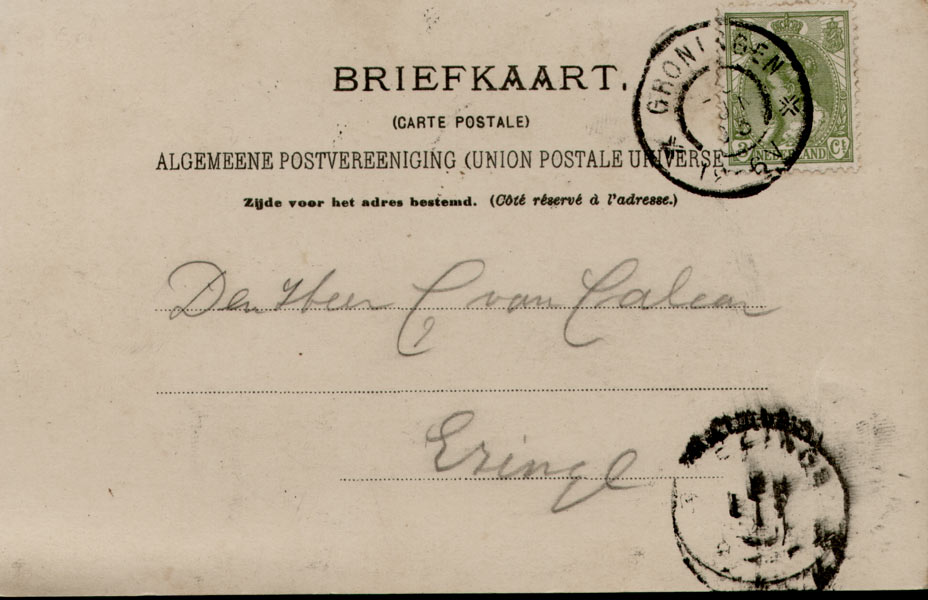 BRIEFKAART.
(CARTE POSTALE)
ALGEMEENE POSTVEREENIGING (UNION POSTALE UNIVERSE
Zijde voor het adres bestemd. (Côté réservé à l'adresse.)
GRONINGEN
NEDERLAND Ct
Den Heer C van Calcar
Ezinge
EZINGE